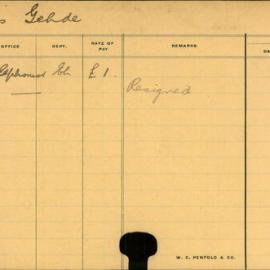 s Gehde
OFFICE DEPT. RATE OF PAY REMARKS DA
£1
Resigned
W. C. PENFOLD & CO.